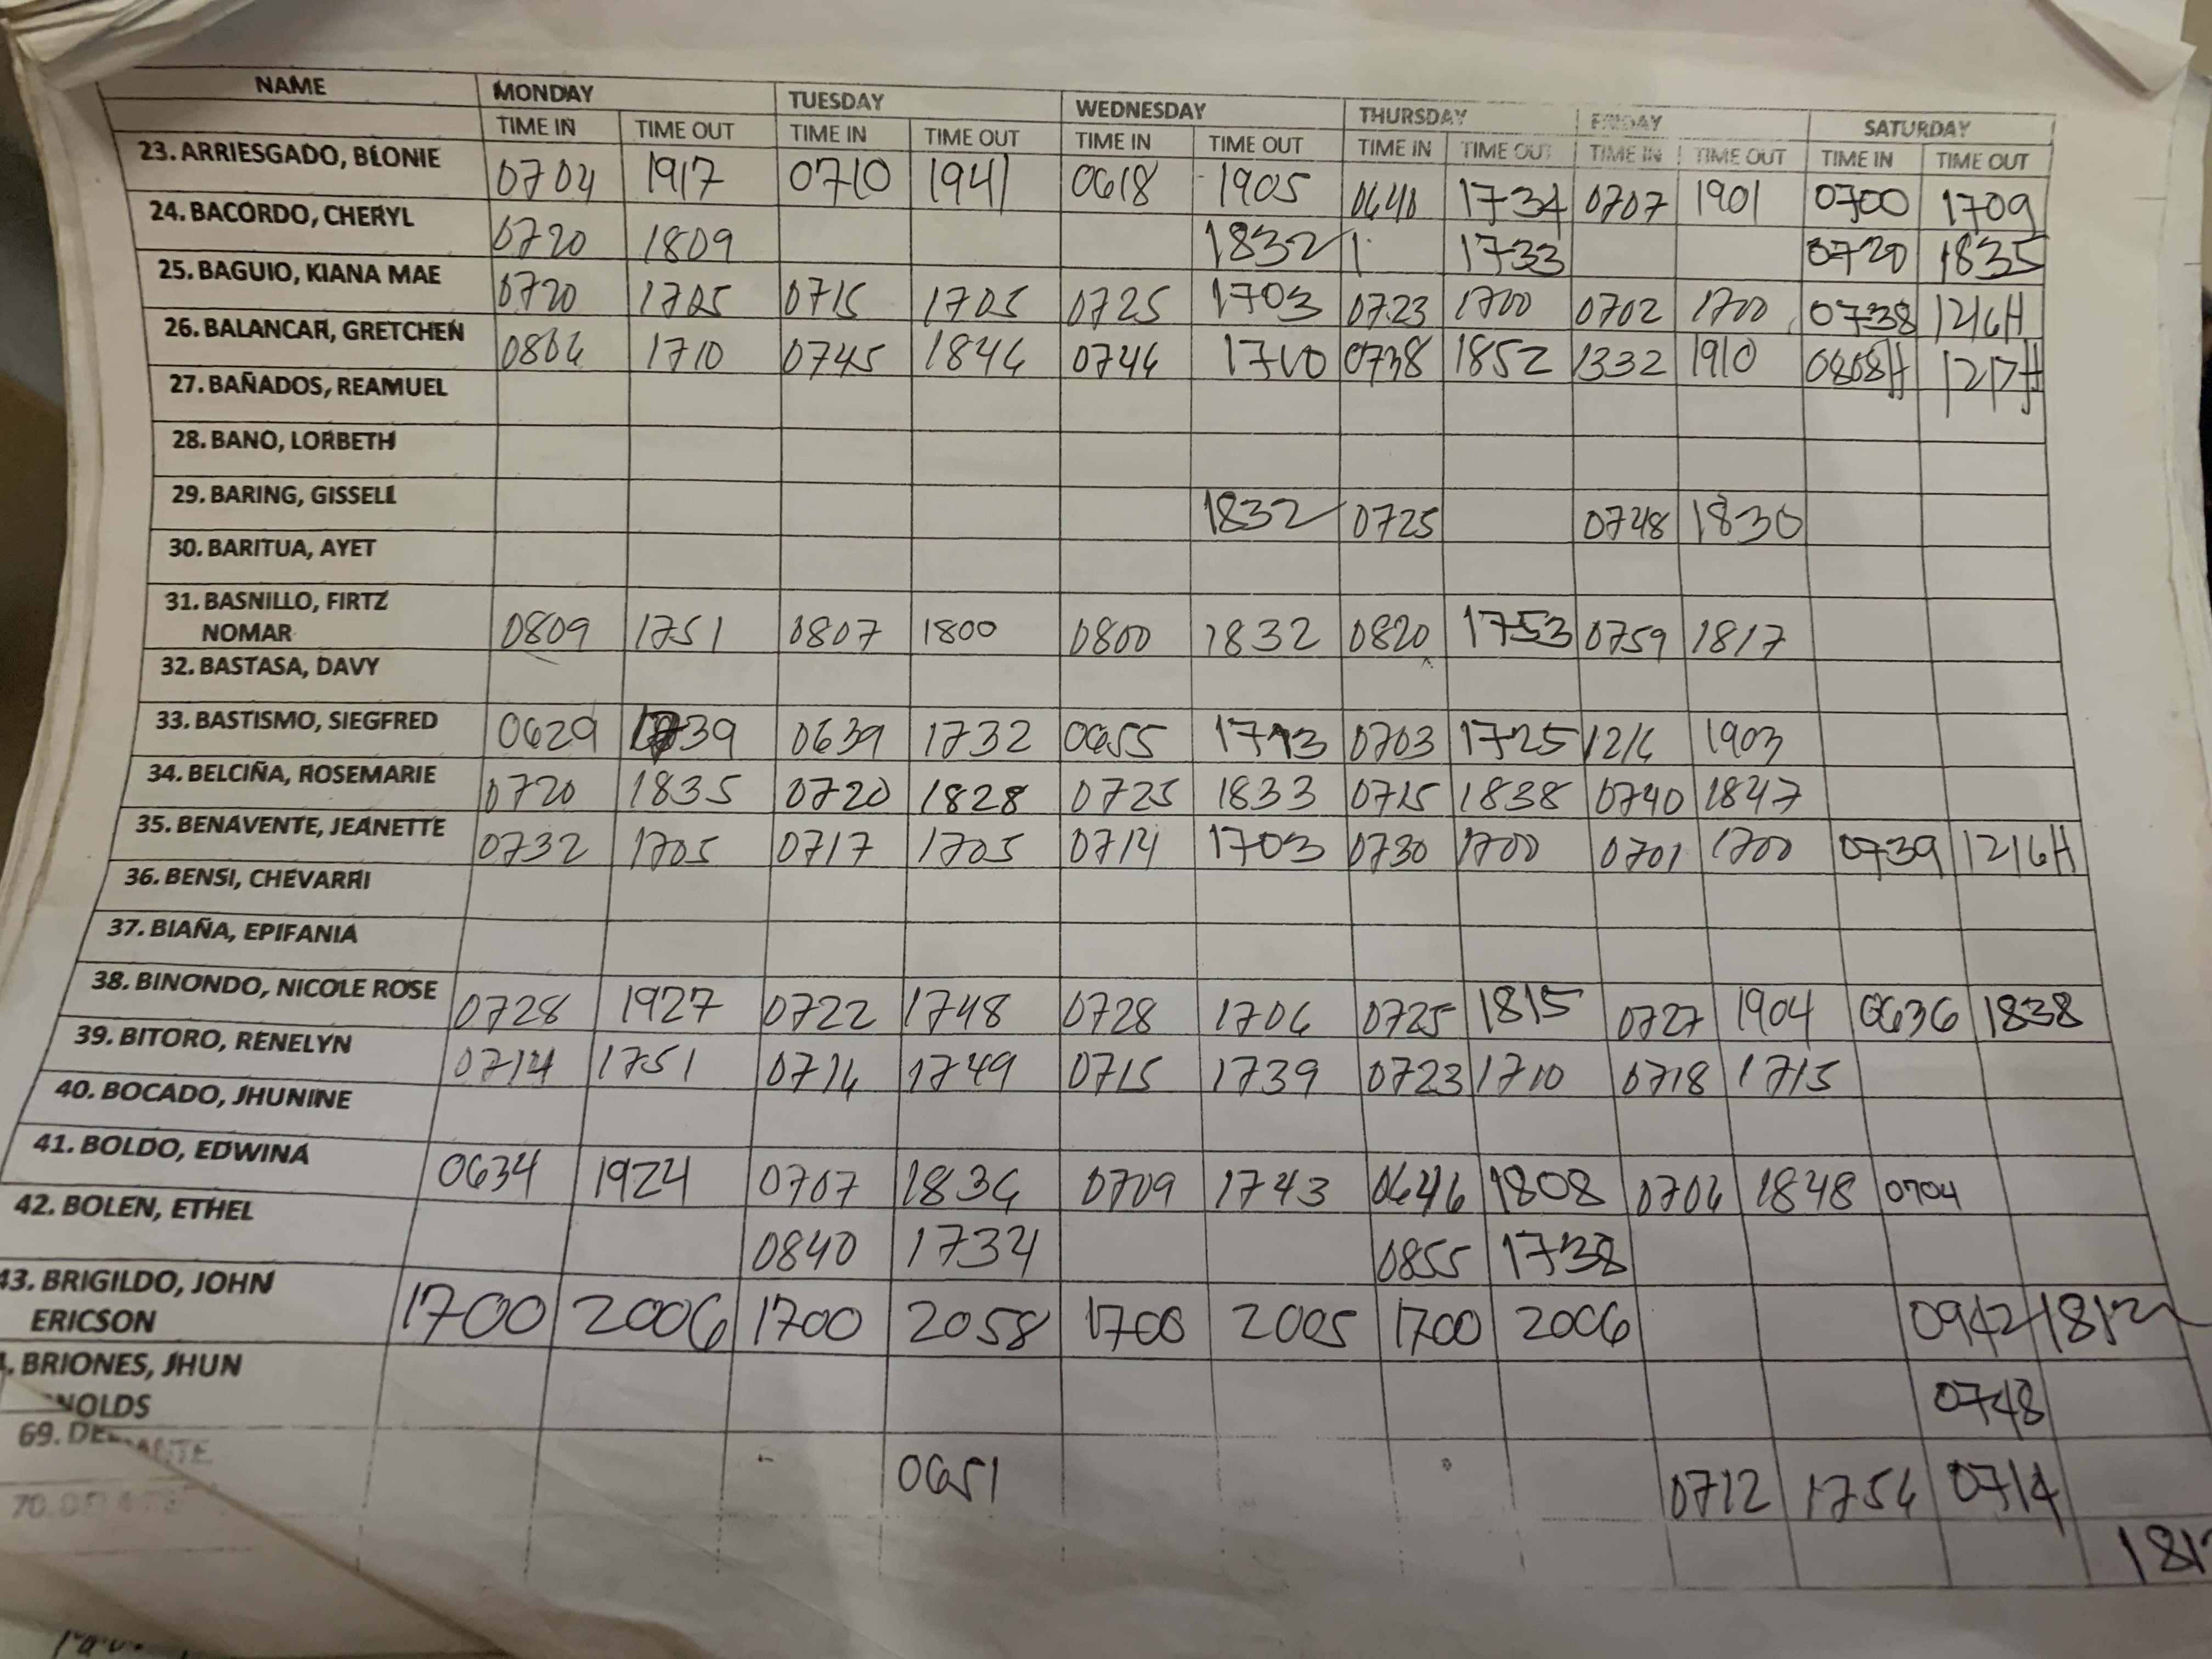 NAME MONDAY TUESDAY WEDNESDAY THURSDAY FRIDAY SATURDAY
TIME IN TIME OUT TIME IN TIME OUT TIME IN TIME OUT TIME IN TIME OUT TIME IN TIME OUT TIME IN TIME OUT
23. ARRIESGADO, BLONIE 0704 1917 0710 1941 0618 1905 1734 0707 1901 0700 1709
24. BACORDO, CHERYL 0720 1809 1832 1733 0729 1835
25. BAGUIO, KIANA MAE 0720 1705 0715 1705 0725 1703 0723 1700 0702 1700 0738
26. BALANCAR, GRETCHEN 1710 0745 1844 0744 1710 0748 1852 1332 1910
27. BAÑADOS, REAMUEL
28. BANO, LORBETH
29. BARING, GISSELL 1832 0725 0748 1830
30. BARITUA, AYET
31. BASNILLO, FIRTZ
NOMAR 0809 1751 0807 1800 0800 1832 0820 1753 0759 1817
32. BASTASA, DAVY
33. BASTISMO, SIEGFRED 0629 0639 1732 0655 1743 0703 1725 1903
34. BELCIÑA, ROSEMARIE 0720 1835 0720 1828 0725 1833 0715 1838 0740 1847
35. BENAVENTE, JEANETTE 0732 1705 0717 1705 0714 1703 0730 1700 0701 1700 0739
36. BENSI, CHEVARRI
37. BIAÑA, EPIFANIA
38. BINONDO, NICOLE ROSE 0728 1927 0722 1748 0728 1706 0725 1815 0727 1904 0636 1838
39. BITORO, RENELYN 0714 1751 0714 1749 0715 1739 0723 1710 0718 1715
40. BOCADO, JHUNINE
41. BOLDO, EDWINA 0634 1924 0707 1836 0709 1743 0646 1808 0704 1848 0704
42. BOLEN, ETHEL 0840 1734 0855 1738
43. BRIGILDO, JOHN
ERICSON 1700 2006 1700 2058 1700 2005 1700 2006
BRIONES, JHUN
NOLDS 0748
69. 0651 0712 1754 0714
70.